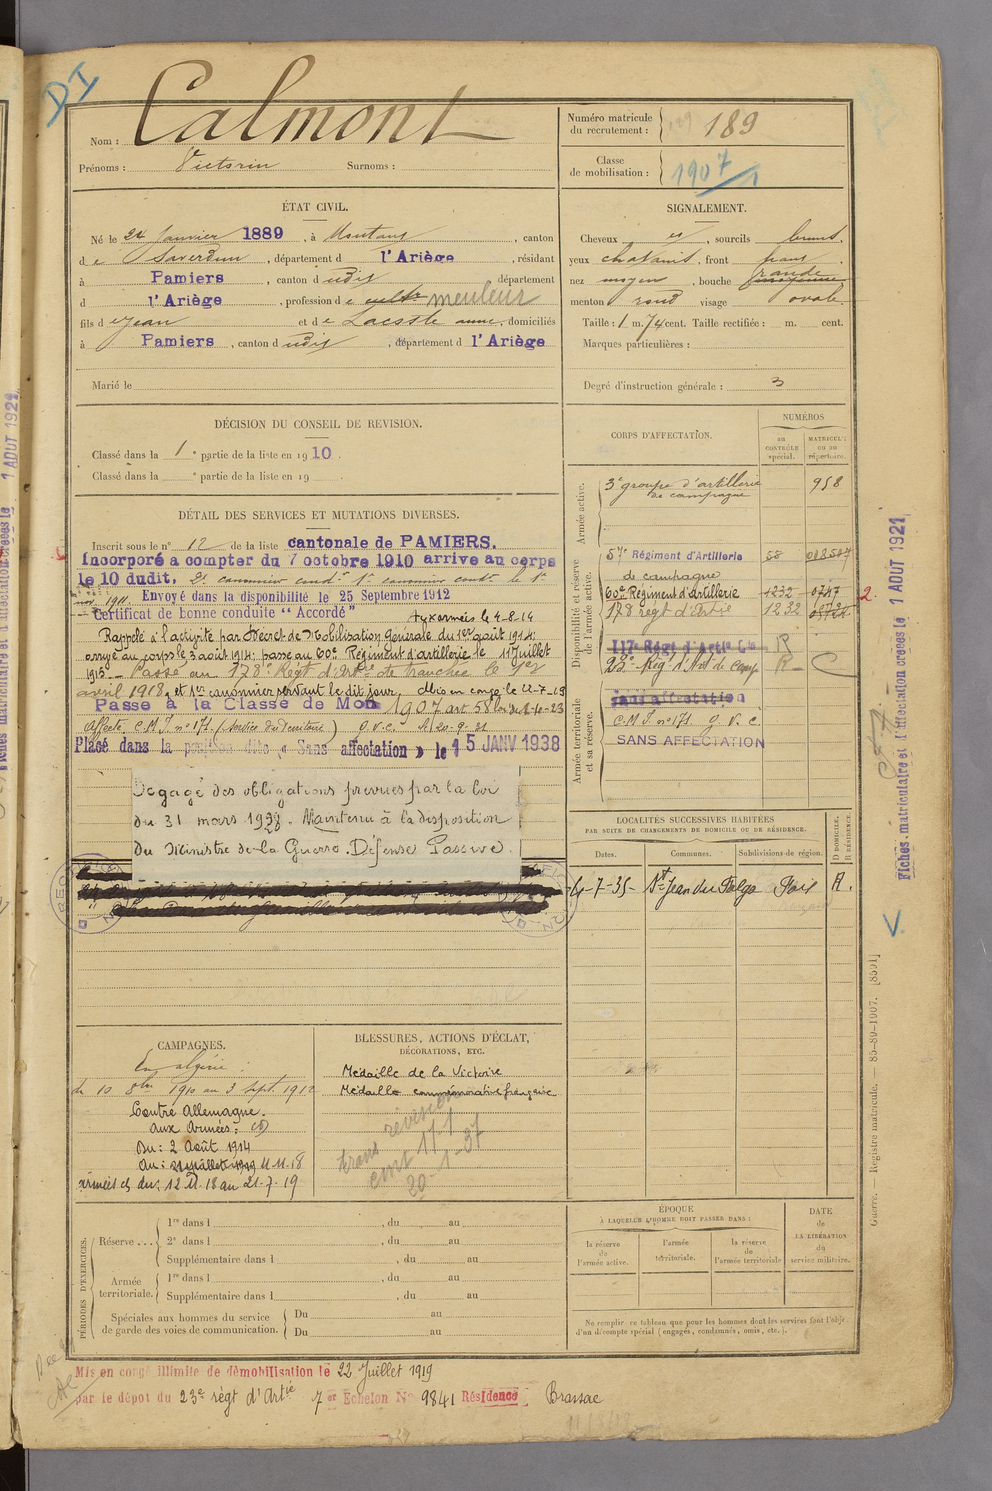 DI
Nom : Calmont
Prénoms : Victorin Surnoms :
Numéro matricule du recrutement : 189
Classe de mobilisation : 1907
ÉTAT CIVIL.
Né le 24 Janvier 1889, à Montaut, canton
de Saverdun, département d l'Ariège, résidant
à Pamiers, canton d udit, département
d l'Ariège, profession de cult. meuleur
fils d e Jean et de Lacoste anne, domiciliés
à Pamiers, canton d udit, département d l'Ariège
Marié le
SIGNALEMENT.
Cheveux et, sourcils bruns.
yeux chatains, front
nez moyen, bouche grande moyenne
menton rond visage ovale.
Taille : 1 m. 74 cent. Taille rectifiée : m. cent.
Marques particulières :
Degré d'instruction générale : 3
DÉCISION DU CONSEIL DE REVISION.
Classé dans la 1e partie de la liste en 1910.
Classé dans la e partie de la liste en 19
DÉTAIL DES SERVICES ET MUTATIONS DIVERSES.
Inscrit sous le n° 12 de la liste cantonale de PAMIERS.
Incorporé à compter du 7 octobre 1910 arrive au corps
le 10 dudit. 2e canonnier condr 1er canonnier condr le 1er
nov. 1911. Envoyé dans la disponibilité le 25 Septembre 1912
Certificat de bonne conduite "Accordé" Aux armées le 4-8-14
Rappelé à l'activité par Décret de Mobilisation Générale du 1er août 1914;
arrivé au corps le 3 août 1914; passé au 60e Régiment d'artillerie le 11 Juillet
1915. Passé au 178e Régt d'Artie de tranchée le 1er
avril 1918, et 1er canonnier servant le dit jour. Mis en congé le 22-7-19
Passé à la Classe de Mob 1907 art 58
Affecté C.M.I. n° 171 (Service du Territoire) G.V.C. le 20-9-31
Placé dans la position dite « Sans affectation » le 15 JANV 1938
Dégagé des obligations prévues par la loi
du 31 mars 1928. Maintenu à la disposition
du Ministre de la Guerre. Défense Passive.
CORPS D'AFFECTATION.
NUMÉROS
au CONTRÔLE spécial.
MATRICULE ou au répertoire.
Armée active.
3e groupe d'artillerie de campagne 958
Disponibilité et réserve de l'armée active.
57e Régiment d'Artillerie 58
de campagne
60e Régiment d'Artillerie 1232 0747
178 régt d'Artie 1232
117e Régt d'Artie Lde R
23e Rég. d'Art. de Camp R
2.
Armée territoriale et sa réserve.
Sans affectation
C.M.I. n° 171 G.V.C.
SANS AFFECTATION
LOCALITÉS SUCCESSIVES HABITÉES
PAR SUITE DE CHANGEMENTS DE DOMICILE OU DE RÉSIDENCE.
Dates. Communes. Subdivisions de région. D DOMICILE. R RÉSIDENCE.
4-7-35 St Jean du Falga Foix R.
CAMPAGNES.
En algérie :
du 10 8bre 1910 au 3 sept. 1912
Contre Allemagne.
Aux Armées :
Du : 2 Août 1914
Au : 21 juillet 1919 11.11.18
armées du : 12.11.18 au 21-7-19
BLESSURES, ACTIONS D'ÉCLAT,
DÉCORATIONS, ETC.
Médaille de la Victoire
Médaille commémorative française
trans réversion
cent 171
20-1-37
PÉRIODES D'EXERCICES.
Réserve... 1re dans l , du au
2e dans l , du au
Supplémentaire dans l , du au
Armée territoriale. 1re dans l , du au
Supplémentaire dans l , du au
Spéciales aux hommes du service de garde des voies de communication. Du au
Du au
ÉPOQUE
À LAQUELLE L'HOMME DOIT PASSER DANS :
la réserve de l'armée active.
l'armée territoriale.
la réserve de l'armée territoriale
DATE de LA LIBÉRATION du service militaire.
Ne remplir ce tableau que pour les hommes dont les services font l'objet
d'un décompte spécial (engagés, condamnés, omis, etc.).
Mis en congé illimité de démobilisation le 22 Juillet 1919
par le dépôt du 23e régt d'Artie 7e Echelon N° 9841 Résidence Brassac
Fiches matriculaire et d'affectation créées le 1 AOUT 1921
Guerre. — Registre matricule. — 85-89-1907. [8591]
1 AOUT 1921